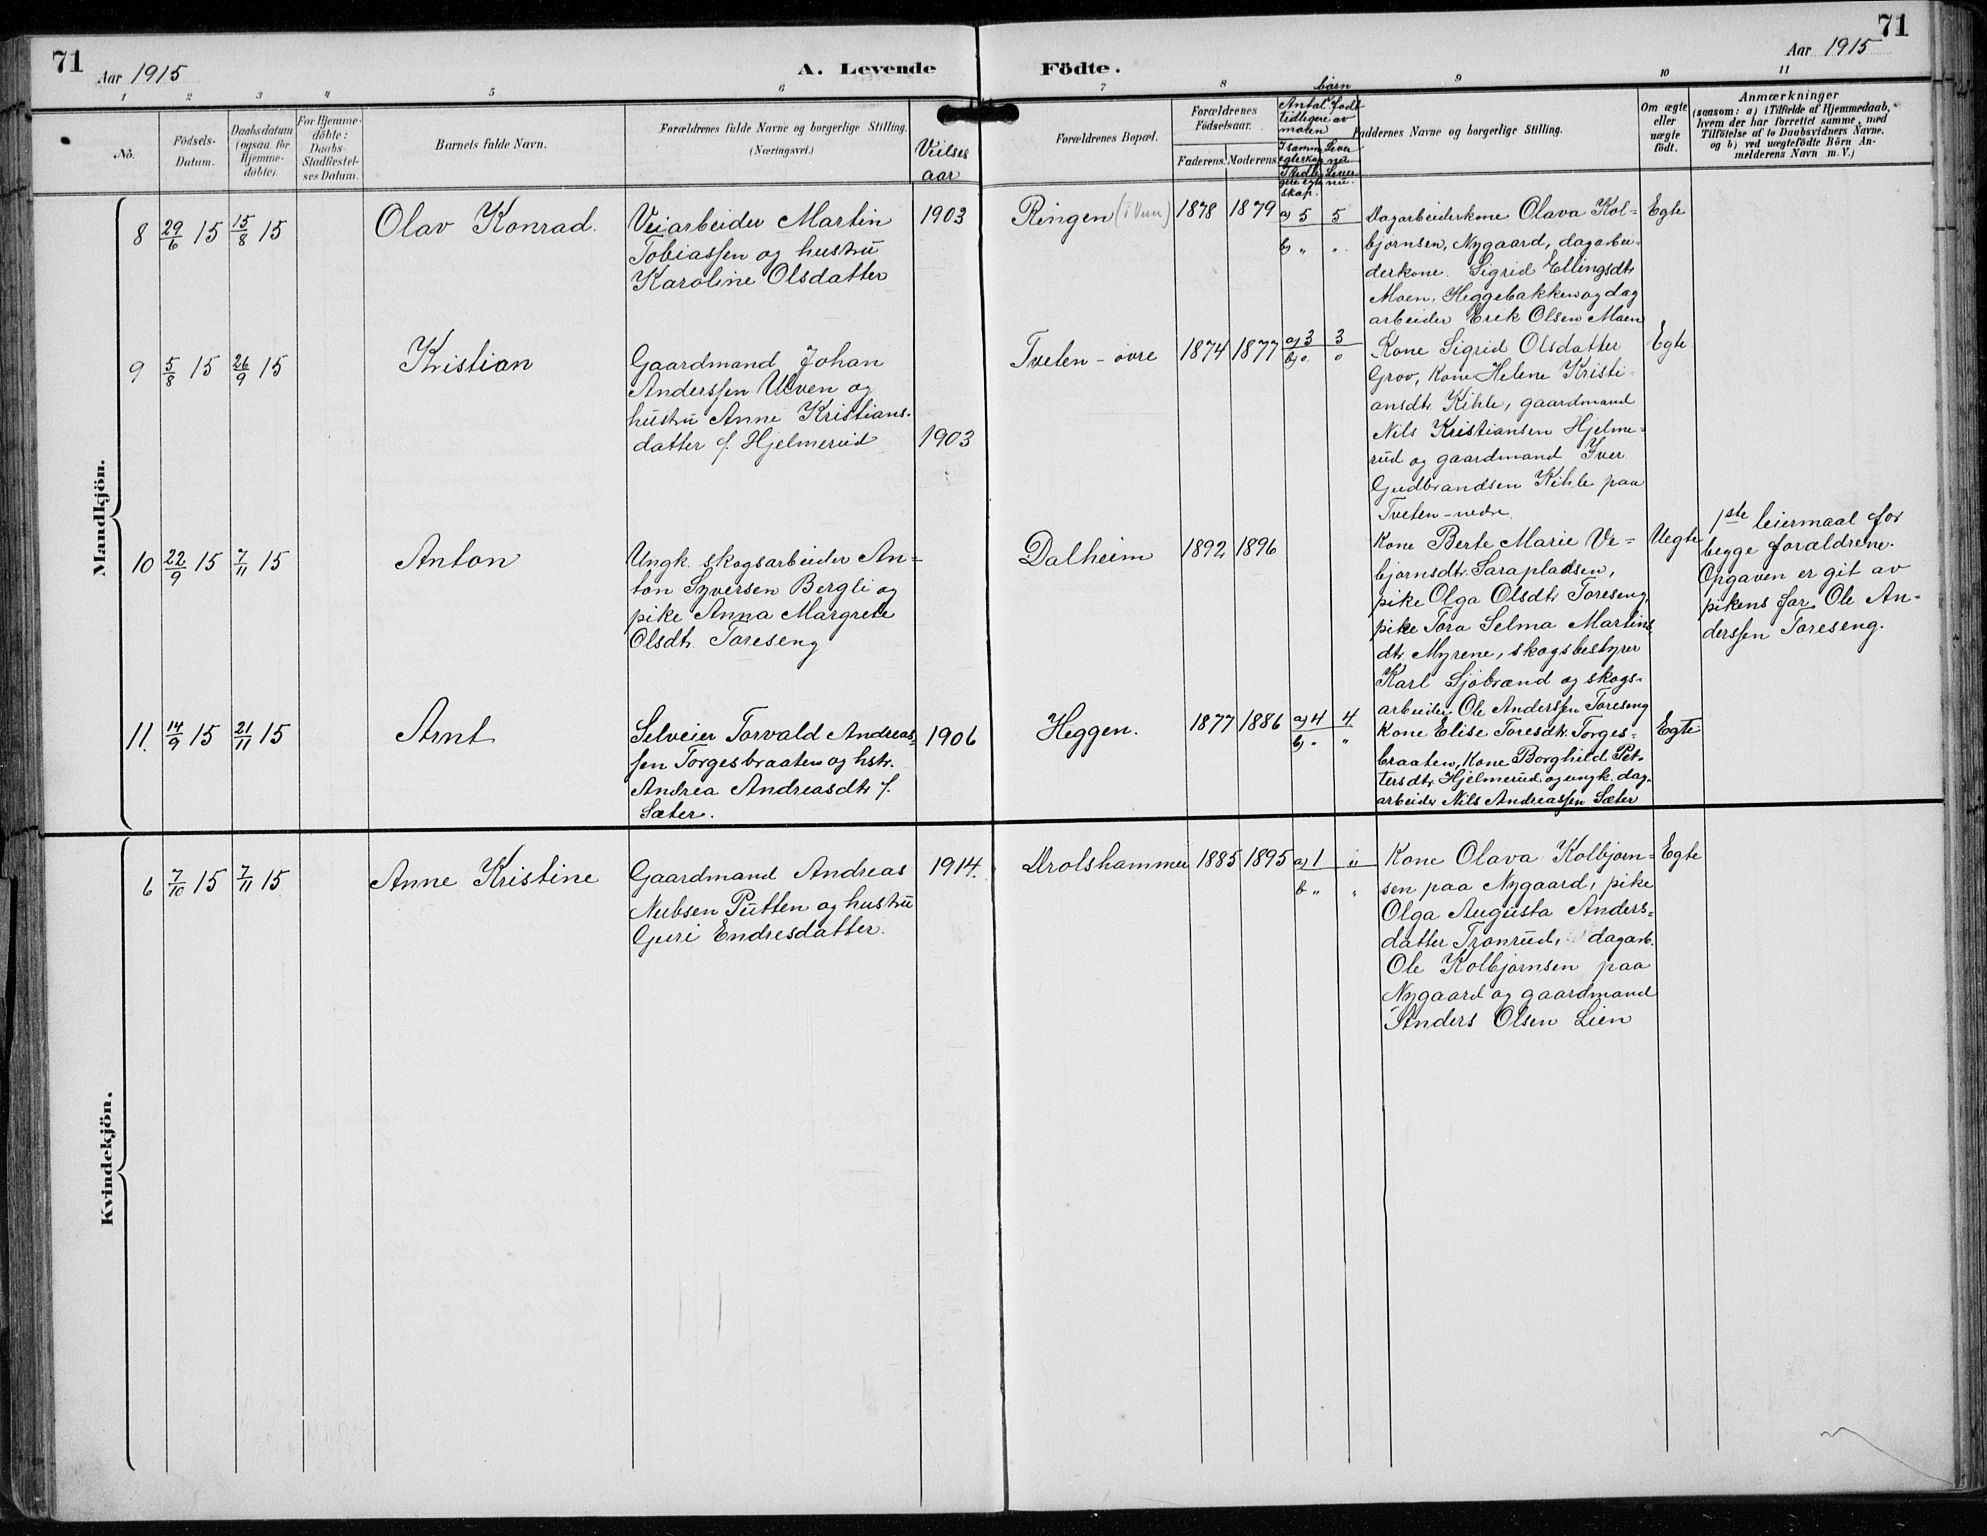 71
Aar 1915
A. Levende
Födte.
71
Aar 1915
1
2
3
4
5
6
7
8
9
10
11
No.
Födsels-
Datum.
Daabsdatum
(ogsaa for
Hjemme-
döbte).
For Hjemme-
döbte:
Daabs-
Stadfæstel-
ses Datum.
Barnets fulde Navn.
Forældrenes fulde Navne og borgerlige Stilling.
(Næringsvei.)
Vielses
aar
Forældrenes Bopæl.
Forældrenes
Födselsaar.
Faderens.
Moderens.
børn
Antal født
tidligere av
moren
I samm.
egteskap
Lever
nu
I tidli-
gere egte-
skap.
Lever
nu.
Faddernes Navne og borgerlige Stilling.
Om ægte
eller
uægte
födt.
Anmærkninger
(saasom: a) i Tilfælde af Hjemmedaab,
hvem der har forrettet samme, med
Tilföielse af to Daabsvidners Navne.
og b) ved uægtefödte Börn An-
melderens Navn m. V.)
Mandkjön.
8
29/6 15
15/8 15
Olav Konrad.
Veiarbeider Martin
Tobiassen og hustru
Karoline Olsdatter
1903
Ringen
1878
1879
a) 5
5
b) "
"
Dagarbeiderkone Olava Kol-
bjørnsen, Nygaard, dagarbei-
derkone Sigrid Ellingsdtr
Moen, Heggebakken og dag
arbeider Erik Olsen Moen
Egte
9
5/8 15
26/9 15
Kristian
Gaardmand Johan
Anderssen Ulven og
hustru Anne Kristians-
datter f. Hjelmerud
1903
Tveten - øvre
1874
1877
a) 3
3
b) "
"
Kone Sigrid Olsdatter
Grov, Kone Helene Kristi-
ansdtr Kihle, gaardmand
Nils Kristiansen Hjelme-
rud og gaardmand Iver
Gudbrandsen Kihle paa
Tveten-nedre
Egte
10
22/9 15
7/11 15
Anton
Ungk. skogsarbeider An-
ton Syversen Bergli og
pike Anna Margrete
Olsdtr. Toreseng
Dalheim
1892
1896
Kone Berte Marie Ve-
bjørnsdtr. Sarapladsen,
pike Olga Olsdtr Toreseng,
pike Tora Selma Martins
dtr Myrene, skogsbestyrer
Karl Sjøbrænd og skogs-
arbeider Ole Anderssen Toreseng
Uegte
1ste leiermaal for
begge forældrene.
Opgaven er git av
pikens far Ole An-
derssen Toreseng.
11.
14/9 15
21/11 15
Arnt
Selveier Torvald Andreas-
sen Torgesbraaten og hstr.
Andrea Andreasdtr f.
Sæter.
1906
Heggen.
1877
1886
a) 4
4
b) "
"
Kone Elise Toresdtr Torges-
braaten, Kone Borghild Pet-
tersdtr Hjelmerud og ungk. dag-
arbeider Nils Andreassen Sæter
Egte
Kvindekjön.
6
7/10 15
7/11 15
Anne Kristine
Gaardmand Andreas
Nubsen Putten og hustru
Guri Endresdatter.
1914.
Drolshammer
1885
1895
a) 1
"
b "
"
Kone Olava Kolbjørn-
sen paa Nygaard, pike
Olga Augusta Anders-
datter Tronrud, dagarb.
Ole Kolbjørnsen paa
Nygaard og gaardmand
Anders Olsen Lien
Egte